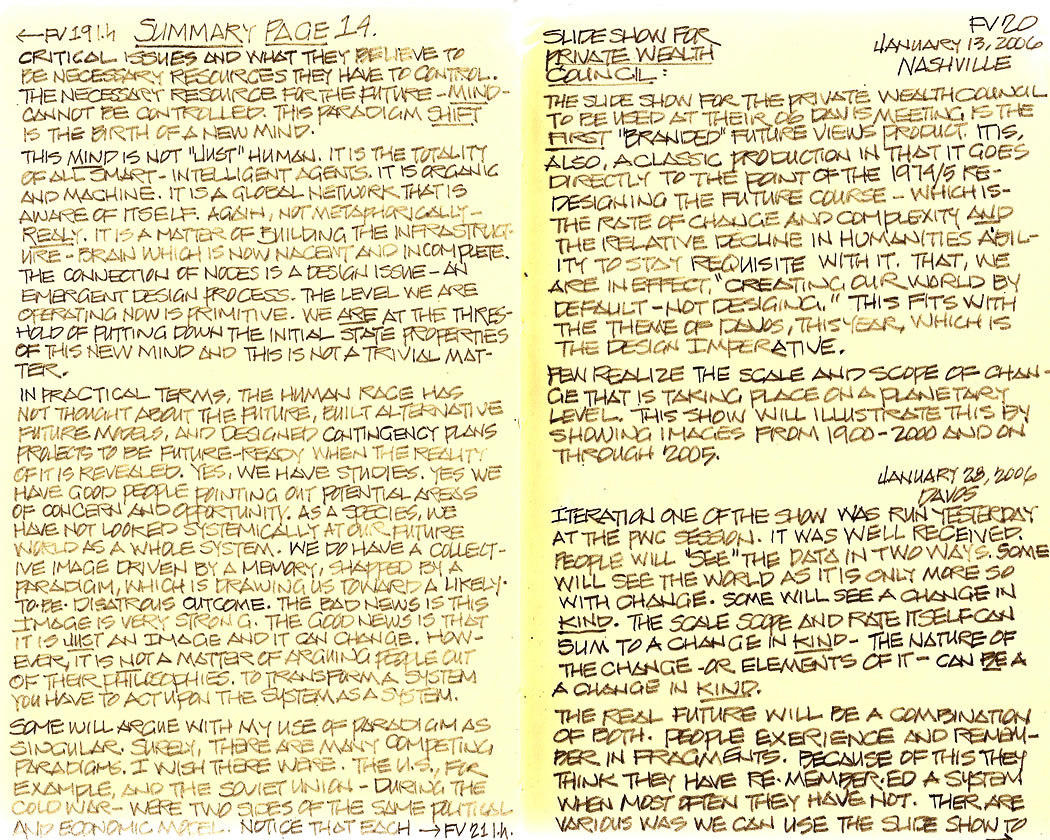 ←FV 19 l.h SUMMARY PAGE 14.
CRITICAL ISSUES AND WHAT THEY BELIEVE TO
BE NECESSARY RESOURCES THEY HAVE TO CONTROL.
THE NECESSARY RESOURCE FOR THE FUTURE - MIND -
CANNOT BE CONTROLLED. THIS PARADIGM SHIFT
IS THE BIRTH OF A NEW MIND.
THIS MIND IS NOT "JUST" HUMAN. IT IS THE TOTALITY
OF ALL SMART - INTELLIGENT AGENTS. IT IS ORGANIC
AND MACHINE. IT IS A GLOBAL NETWORK THAT IS
AWARE OF ITSELF. AGAIN, NOT METAPHORICALLY -
REALY. IT IS A MATTER OF BUILDING THE INFRASTRUCT-
URE - BRAIN WHICH IS NOW NACENT AND INCOMPLETE.
THE CONNECTION OF NODES IS A DESIGN ISSUE - AN
EMERGENT DESIGN PROCESS. THE LEVEL WE ARE
OPERATING NOW IS PRIMITIVE. WE ARE AT THE THRES-
HOLD OF PUTTING DOWN THE INITIAL STATE PROPERTIES
OF THIS NEW MIND AND THIS IS NOT A TRIVIAL MAT-
TER.
IN PRACTICAL TERMS, THE HUMAN RACE HAS
NOT THOUGHT ABOUT THE FUTURE, BUILT ALTERNATIVE
FUTURE MODELS, AND DESIGNED CONTINGENCY PLANS
PROJECTS TO BE FUTURE-READY WHEN THE REALITY
OF IT IS REVEALED. YES, WE HAVE STUDIES. YES WE
HAVE GOOD PEOPLE POINTING OUT POTENTIAL AREAS
OF CONCERN AND OPPORTUNITY. AS A SPECIES, WE
HAVE NOT LOOKED SYSTEMICALLY AT OUR FUTURE
WORLD AS A WHOLE SYSTEM. WE DO HAVE A COLLECT-
IVE IMAGE DRIVEN BY A MEMORY, SHAPPED BY A
PARADIGM, WHICH IS DRAWING US TOWARD A LIKELY-
TO-BE- DISATROUS OUTCOME. THE BAD NEWS IS THIS
IMAGE IS VERY STRONG. THE GOOD NEWS IS THAT
IT IS JUST AN IMAGE AND IT CAN CHANGE. HOW-
EVER, IT IS NOT A MATTER OF ARGUING PEOPLE OUT
OF THEIR PHILOSOPHIES. TO TRANSFORM A SYSTEM
YOU HAVE TO ACT UPON THE SYSTEM AS A SYSTEM.
SOME WILL ARGUE WITH MY USE OF PARADIGM AS
SINGULAR. SURELY, THERE ARE MANY COMPETING
PARADIGMS. I WISH THERE WERE. THE U.S., FOR
EXAMPLE, AND THE SOVIET UNION - DURING THE
COLD WAR - WERE TWO SIDES OF THE SAME POLITICAL
AND ECONOMIC MODEL. NOTICE THAT EACH →FV 21 l.h.
FV 20
JANUARY 13, 2006
NASHVILLE
SLIDE SHOW FOR
PRIVATE WEALTH
COUNCIL:
THE SLIDE SHOW FOR THE PRIVATE WEALTH COUNCIL
TO BE USED AT THEIR 06 DAVIS MEETING IS THE
FIRST "BRANDED" FUTURE VIEWS PRODUCT. IT IS,
ALSO, A CLASSIC PRODUCTION IN THAT IT GOES
DIRECTLY TO THE POINT OF THE 1974/5 RE-
DESIGNING THE FUTURE COURSE - WHICH IS -
THE RATE OF CHANGE AND COMPLEXITY AND
THE RELATIVE DECLINE IN HUMANITIES ABIL-
ITY TO STAY REQUISITE WITH IT. THAT, WE
ARE IN EFFECT, "CREATING OUR WORLD BY
DEFAULT - NOT DESIGING." THIS FITS WITH
THE THEME OF DAVOS, THIS YEAR, WHICH IS
THE DESIGN IMPERATIVE.
FEW REALIZE THE SCALE AND SCOPE OF CHAN-
GE THAT IS TAKING PLACE ON A PLANETARY
LEVEL. THIS SHOW WILL ILLUSTRATE THIS BY
SHOWING IMAGES FROM 1900-2000 AND ON
THROUGH 2005.
JANUARY 28, 2006
DAVOS
ITERATION ONE OF THE SHOW WAS RUN YESTERDAY
AT THE PWC SESSION. IT WAS WELL RECEIVED.
PEOPLE WILL "SEE" THE DATA IN TWO WAYS. SOME
WILL SEE THE WORLD AS IT IS ONLY MORE SO
WITH CHANGE. SOME WILL SEE A CHANGE IN
KIND. THE SCALE SCOPE AND RATE ITSELF CAN
SUM TO A CHANGE IN KIND - THE NATURE OF
THE CHANGE - OR ELEMENTS OF IT - CAN BE A
A CHANGE IN KIND.
THE REAL FUTURE WILL BE A COMBINATION
OF BOTH. PEOPLE EXERIENCE AND REMEM-
BER IN FRAGMENTS. BECAUSE OF THIS THEY
THINK THEY HAVE RE-MEMBER-ED A SYSTEM
WHEN MOST OFTEN THEY HAVE NOT. THER ARE
VARIOUS WAS WE CAN USE THE SLIDE SHOW TO